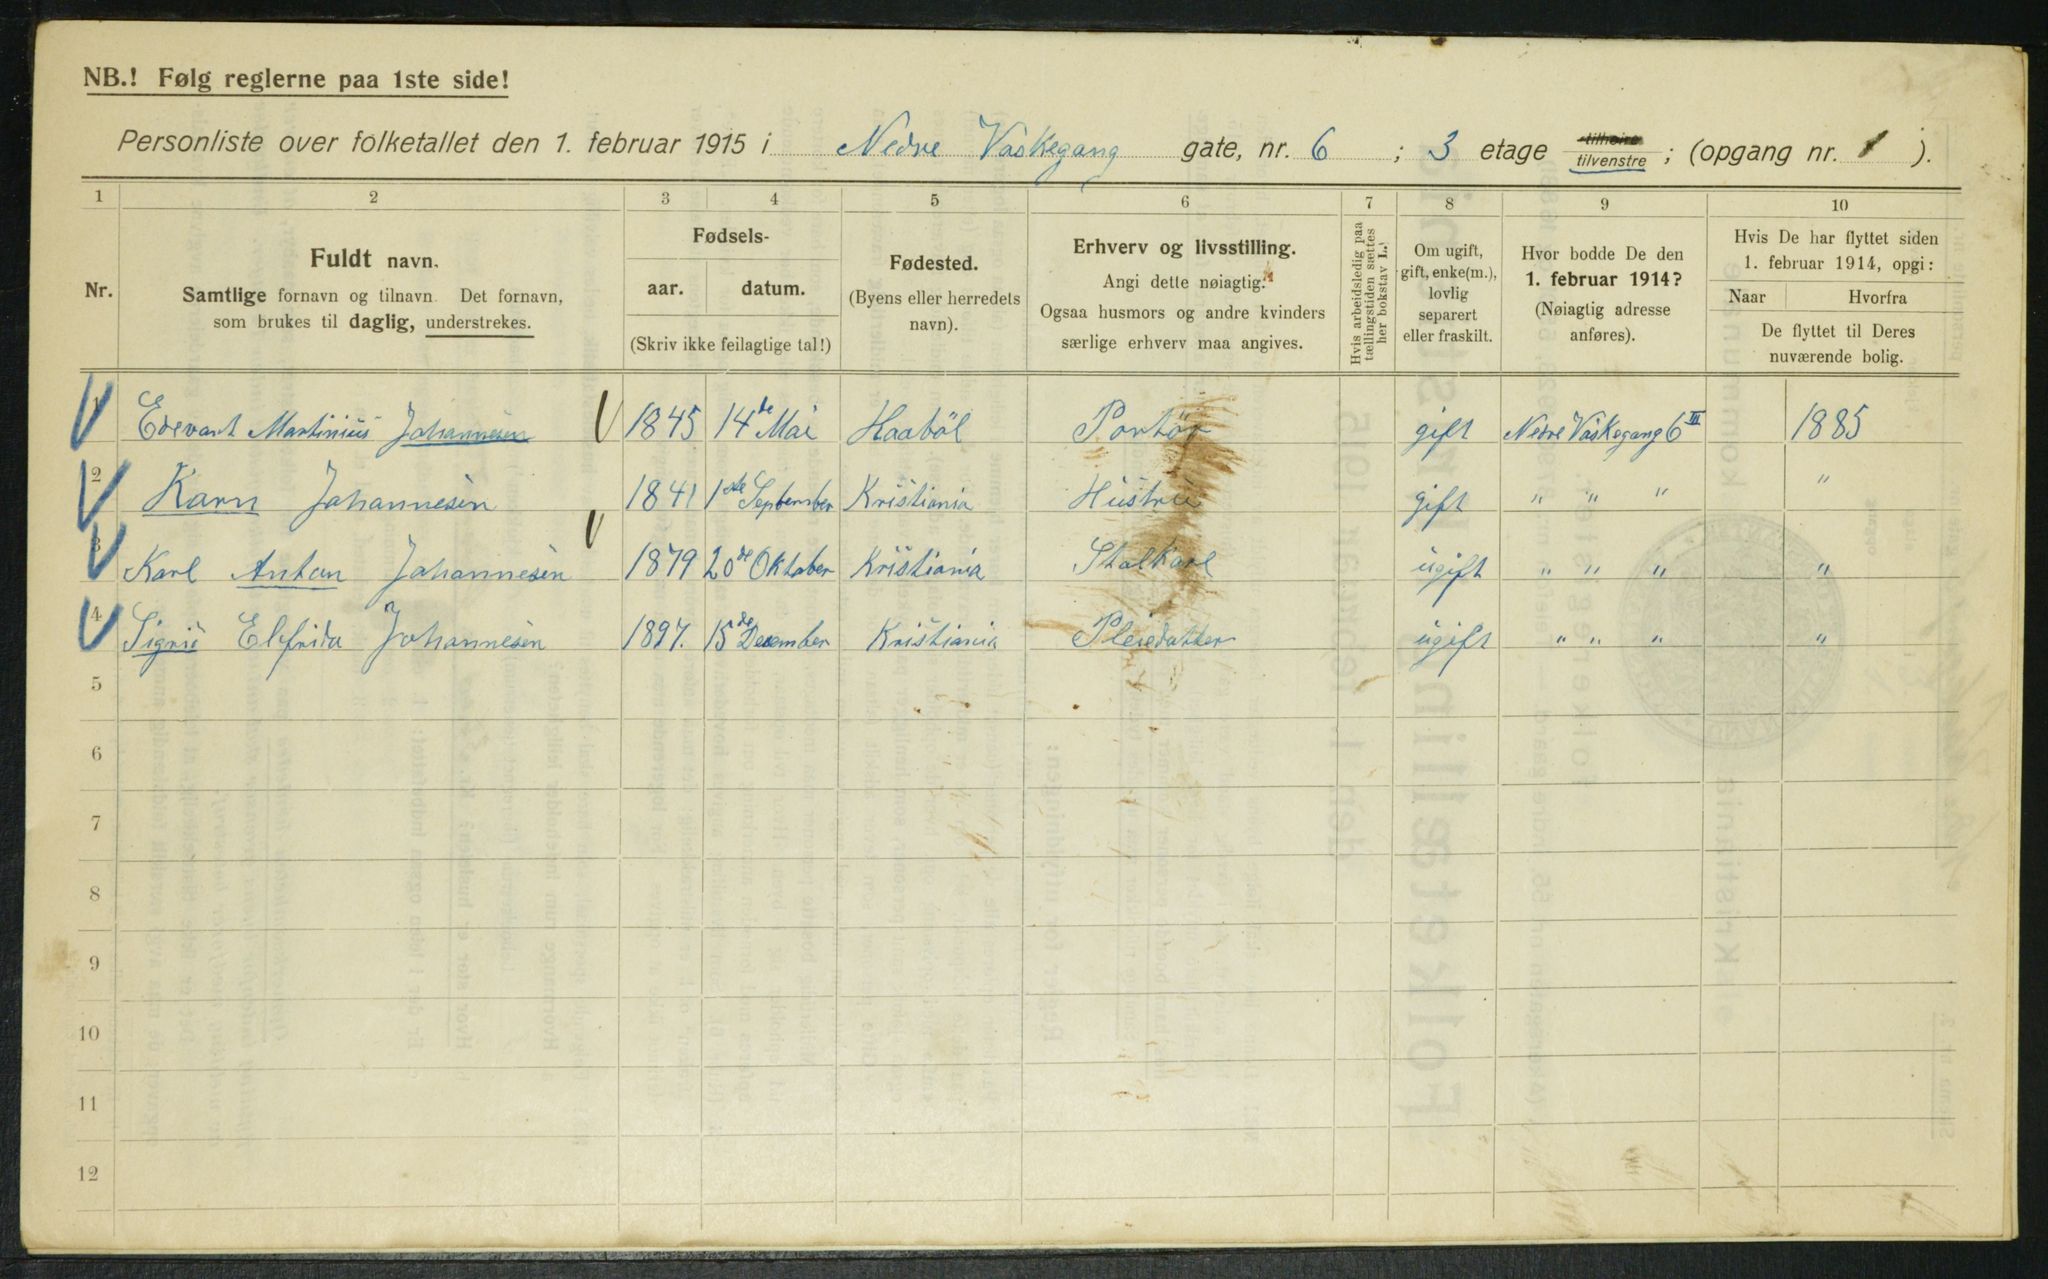 NB.! Følg reglerne paa 1ste side!
Personliste over folketallet den 1. februar 1915 i Nedre Vaskegang gate, nr. 6 ; 3 etage tilhøire tilvenstre ; (opgang nr. 1 ).
1 2 3 4 5 6 7 8 9 10
Nr.
Fuldt navn.
Samtlige fornavn og tilnavn. Det fornavn,
som brukes til daglig, understrekes.
Fødsels-
aar. datum.
(Skriv ikke feilagtige tal!)
Fødested.
(Byens eller herredets
navn).
Erhverv og livsstilling.
Angi dette nøiagtig.
Ogsaa husmors og andre kvinders
særlige erhverv maa angives.
Hvis arbeidsledig paa
tællingstiden sættes
her bokstav L.
Om ugift,
gift, enke(m.),
lovlig
separert
eller fraskilt.
Hvor bodde De den
1. februar 1914?
(Nøiagtig adresse
anføres).
Hvis De har flyttet siden
1. februar 1914, opgi:
Naar Hvorfra
De flyttet til Deres
nuværende bolig.
1 Edevart Martinius Johannesen 1845 14de Mai Haabøl Portør gift Nedre Vaskegang 6 III 1885
2 Karn Johannesen 1841 1ste September Kristiania Hustru gift " " " "
3 Karl Anton Johannesen 1879 20de Oktober Kristiania Stalkarl ugift " " " "
4 Sigrid Elfrida Johannesen 1897. 15de Desember Kristiania Pleiedatter ugift " " " "
5
6
7
8
9
10
11
12